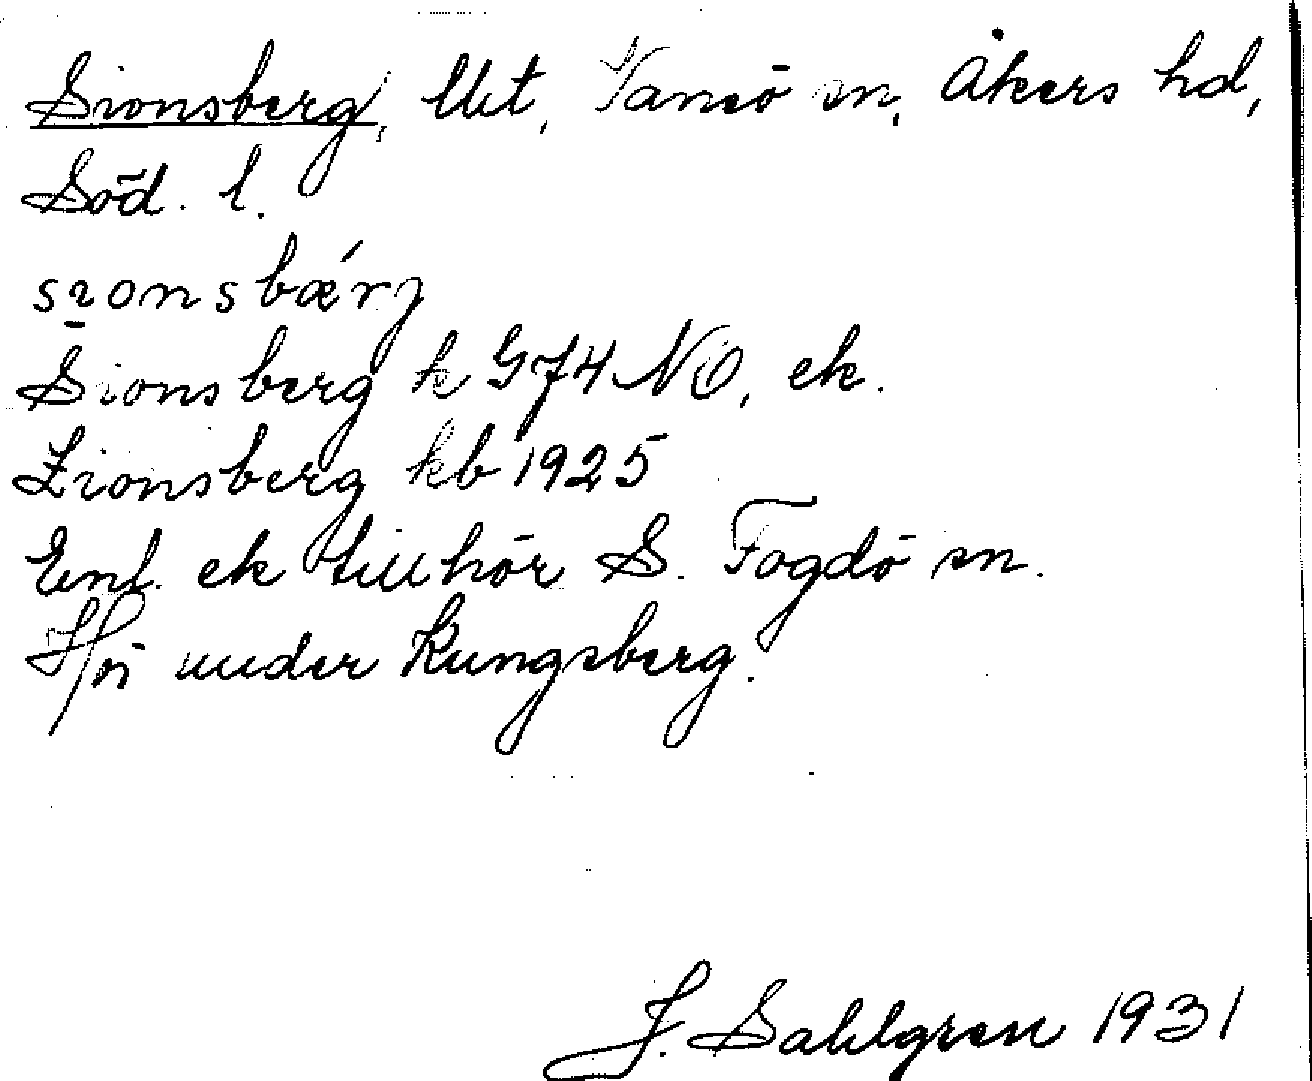 Sionsberg, lht, Vansö sn, Åkers hd,
Söd. l.
sionsbærj
Sionsberg k G74 NO, ek.
Zionsberg kb 1925
Enl. ek tillhör S. Fogdö sn.
under Kungsberg.
J. Sahlgren 1931